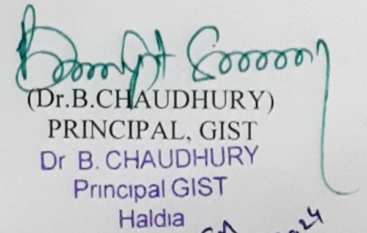 (Dr.B.CHAUDHURY)
PRINCIPAL, GIST
Dr B. CHAUDHURY
Principal GIST
Haldia